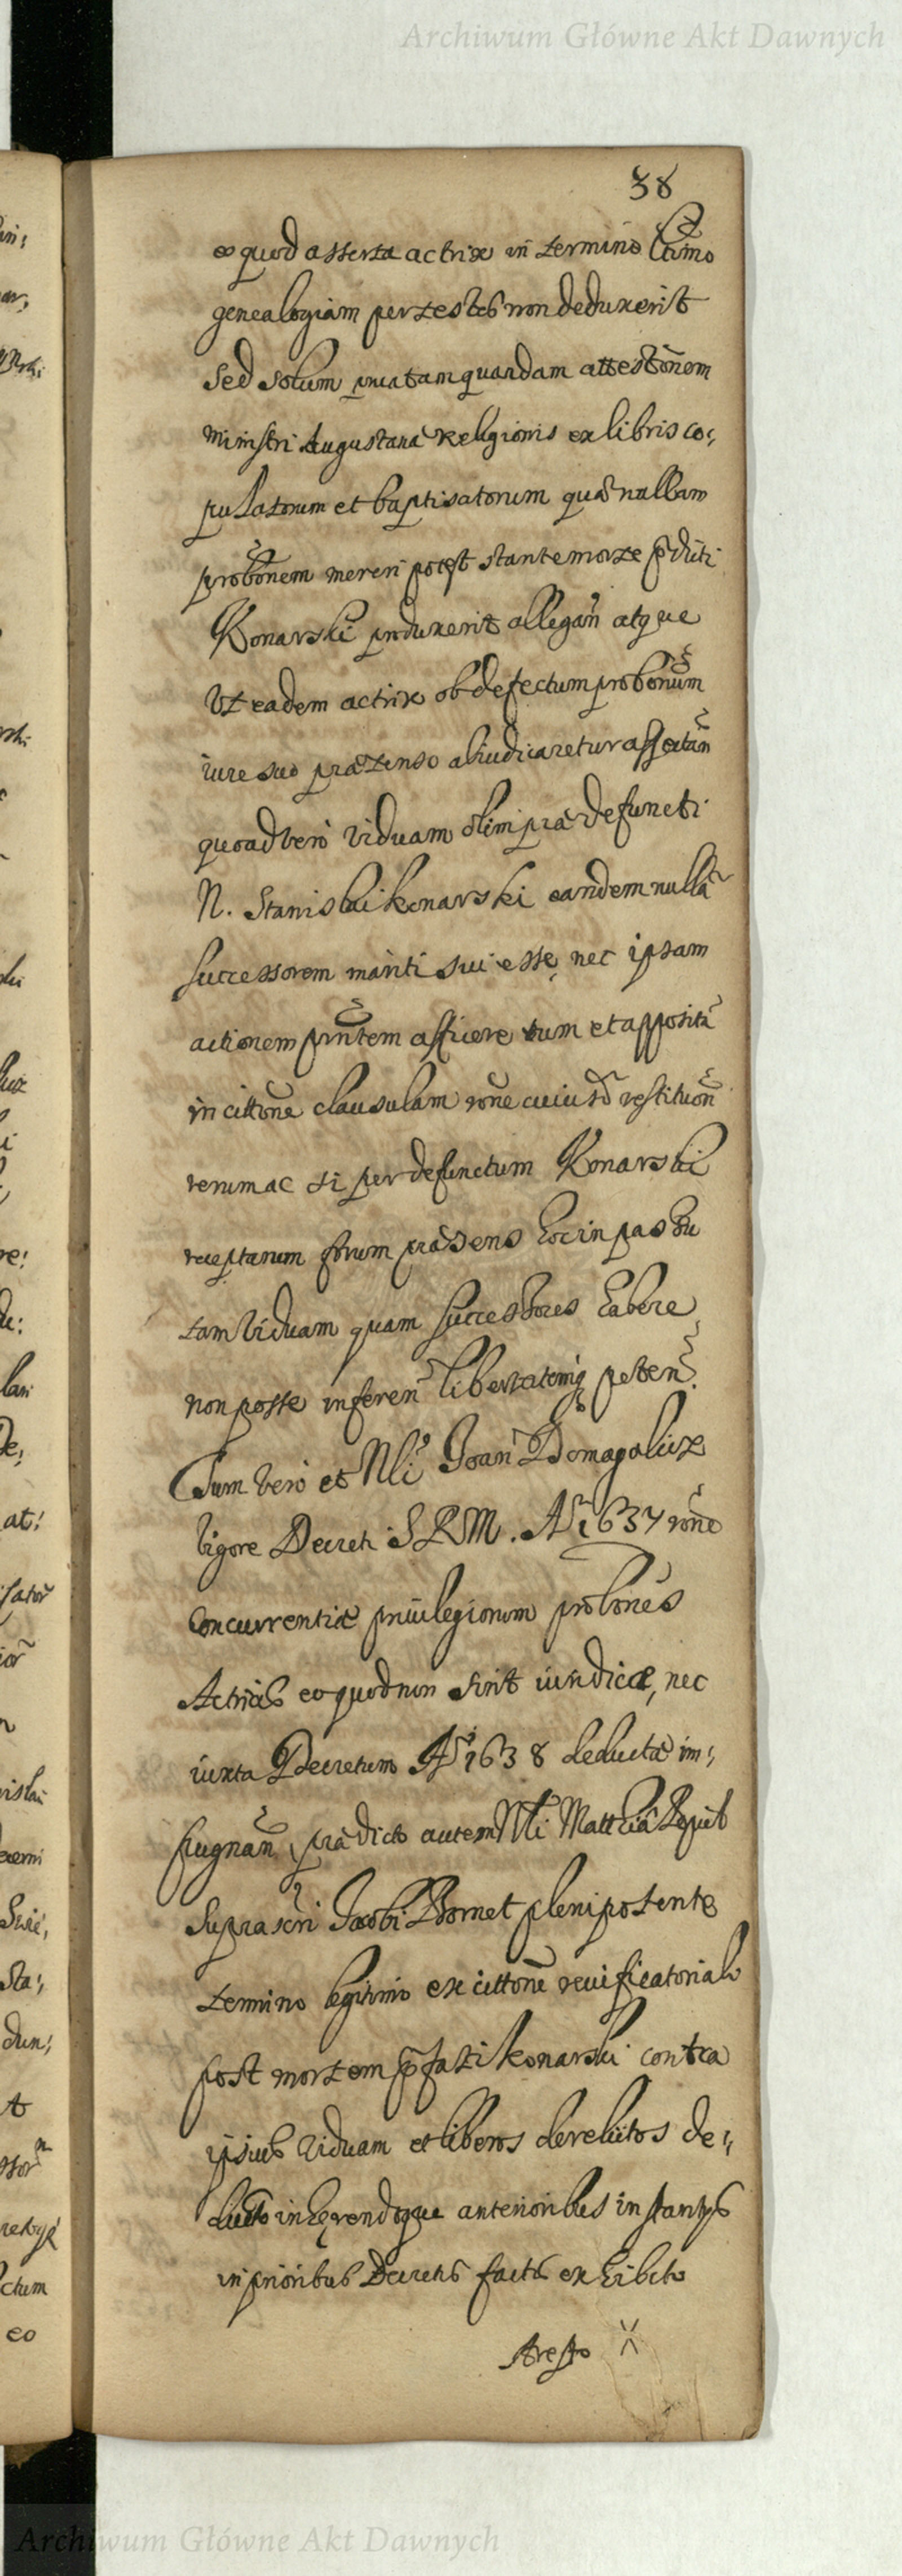 Archiwum Główne Akt Dawnych
38
eo quod asserta actrix in termino
genealogiam per testes non deduxerit
Sed solum priuatam quandam attestõnem
ministri Augustanæ Religionis ex libris co,
pulatorum et baptisatorum quæ nullam
probõnem mereri potest stante morte
Konarski produxerit allegan̄ atque
Vt eadem actrix ob defectum probonum
iure suo prætenso abiudicaretur
quoad vero Viduam olim præ defuncti
N. Stanislai Konarski eandem nullā
Successorem mariti sui esse, nec ipsam
actionem prñtem afficere tum et appositā
in cittõne clausulam rõne restituõn
rerum ac si per defunctum Konarski
receptarum forum præsens hoc in passu
tam Viduam quam Successores habere
non posse inferen̄ libertatemq peten̄.
Tum vero et Nli Joan̄ Domagalicz
Vigore Decreti S R M. Aº 1637 rõne
concurrentiæ priuilegiorum probões
Actricis eo quod non sint iuridicæ, nec
iuxta Decretum Aº 1638 deductæ im,
pugnan̄, prædicto autem Nli Matthia
Suprascri Jacobi Bornet plenipotente
termino legitimo ex cittõne reuificatorialj
post mortem pfati Konarski contra
ipsius Viduam et liberos derelictos de,
ducto inhęrendoque anterioribus instantijs
in prioribus Decretis factis exhibito
Aresto
Archiwum Główne Akt Dawnych